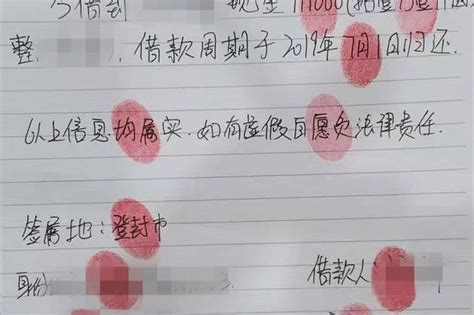 今借到
整 ，借款周期于2019年7月1日归还.
以上信息均属实.如有虚假自愿负法律责任.
签属地：登封市
身份
借款人：